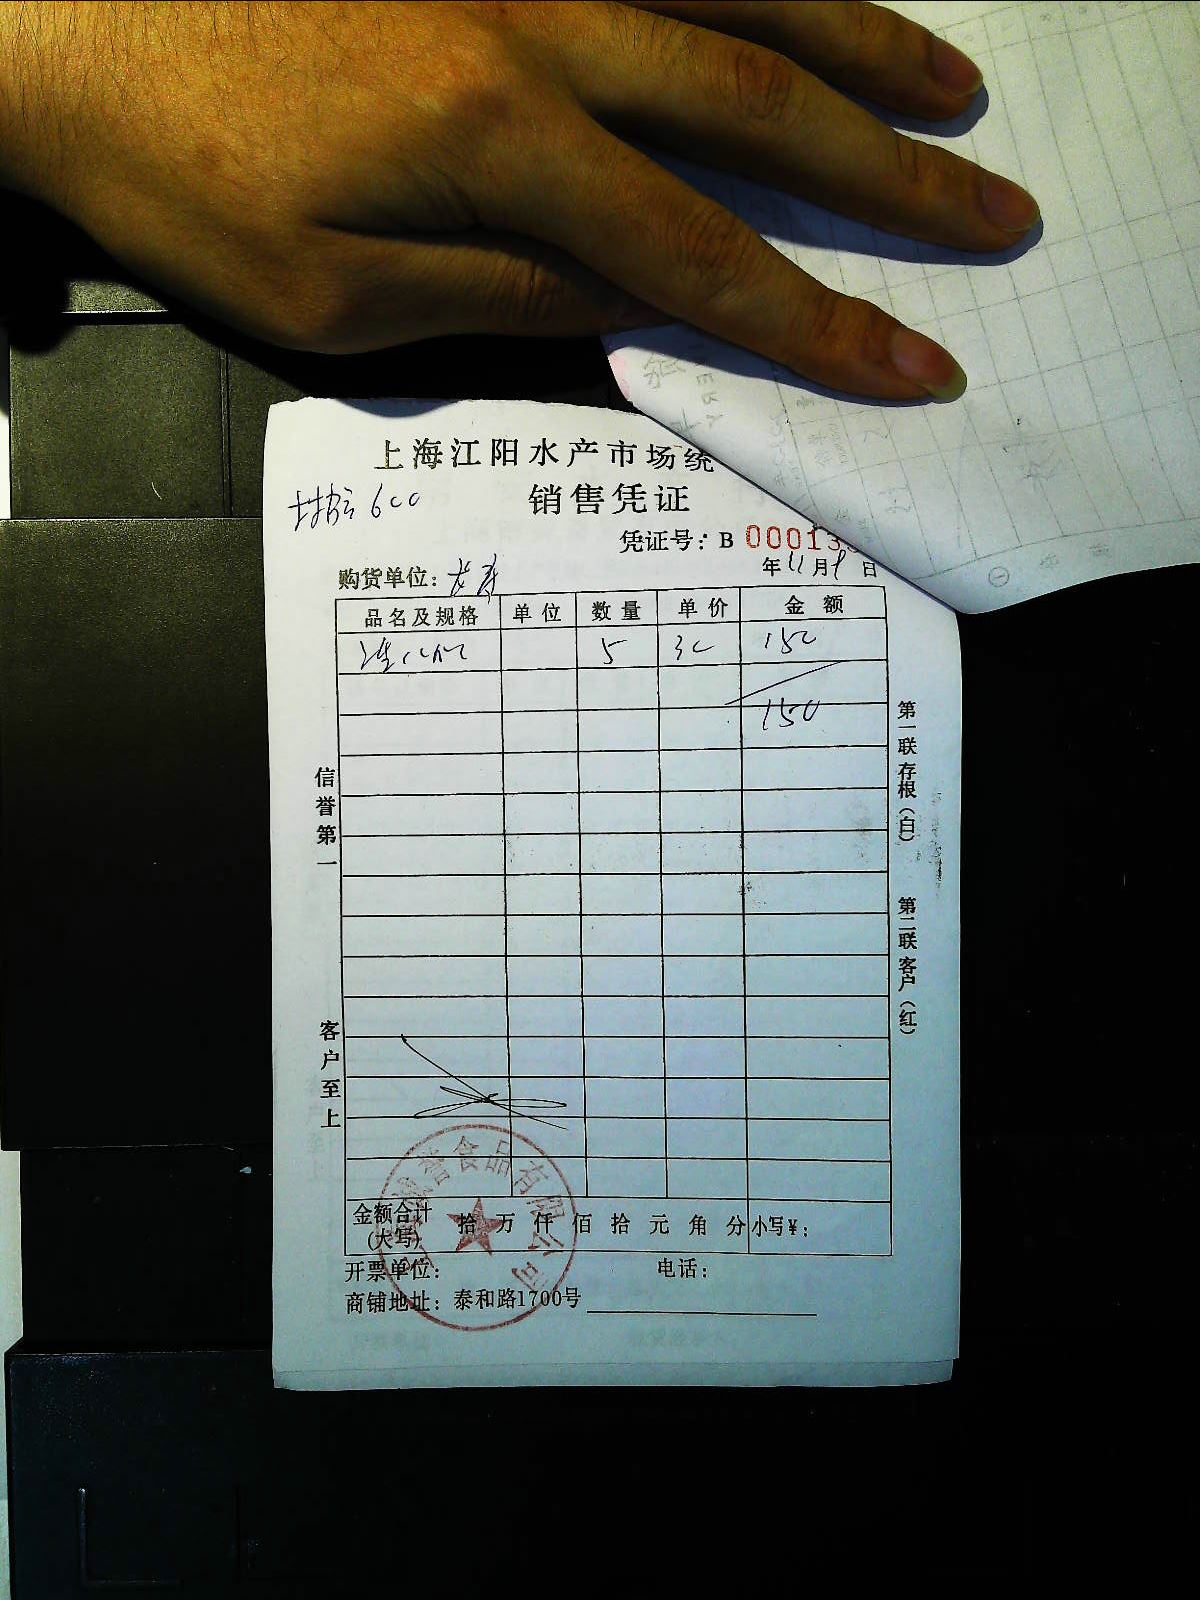 上海江阳水产市场统
销售凭证
600
凭证号：B 00013
年11月9日
购货单位：
品名及规格 单位 数量 单价 金额
5 30 150
150
信誉第一
客户至上
第一联存根（白）
第二联客户（红）
誉食品有限公司
金额合计（大写） 拾万仟佰拾元角分 小写￥：
开票单位： 电话：
商铺地址：泰和路1700号